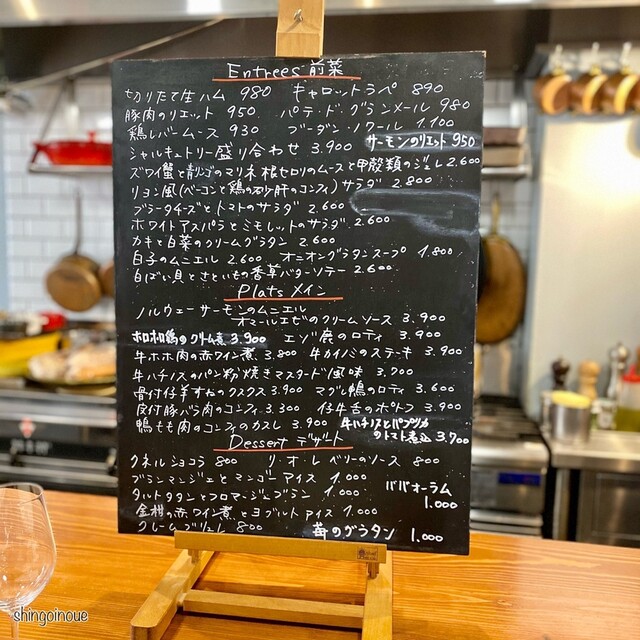 Entrees 前菜
切りたて生ハム 980 キャロットラペ 890
豚肉のリエット 950 パテ・ド・グランメール 980
鶏レバームース 930 ブーダン・ノワール 1.100
シャルキュトリー盛り合わせ 3.900 サーモンのリエット 950
ズワイ蟹と青リンゴのマリネ 根セロリのムースと甲殻類のジュレ 2.600
リヨン風(ベーコンと鶏の砂肝のコンフィ)サラダ 2.800
ブラータチーズとトマトのサラダ 2.600
ホワイトアスパラとミモレットのサラダ 2.600
カキと白菜のクリームグラタン 2.600
白子のムニエル 2.600 オニオングラタンスープ 1.800
白ばい貝とさといもの香草バターソテー 2.600
Plats メイン
ノルウェーサーモンのムニエル
オマールエビのクリームソース 3.900
ホロホロ鶏のクリーム煮 3.900 エゾ鹿のロティ 3.900
牛ホホ肉の赤ワイン煮 3.800 牛カイノミのステーキ 3.900
牛ハチノスのパン粉焼きマスタード風味 3.700
骨付仔羊すねのクスクス 3.900 マグレ鴨のロティ 3.600
皮付豚バラ肉のコンフィ 3.300 仔牛舌のポトフ 3.900
鴨もも肉のコンフィのカスレ 3.900 牛ハチノスとパプリカ
のトマト煮込 3.700
Dessert デザート
クネルショコラ 800 リ・オ・レ ベリーのソース 800
ブランマンジェとマンゴーアイス 1.000
ババオーラム
1.000
タルトタタンとフロマージュブラン 1.000
金柑の赤ワイン煮とヨーグルトアイス 1.000
クレームブリュレ 800 苺のグラタン 1.000
shingoinoue